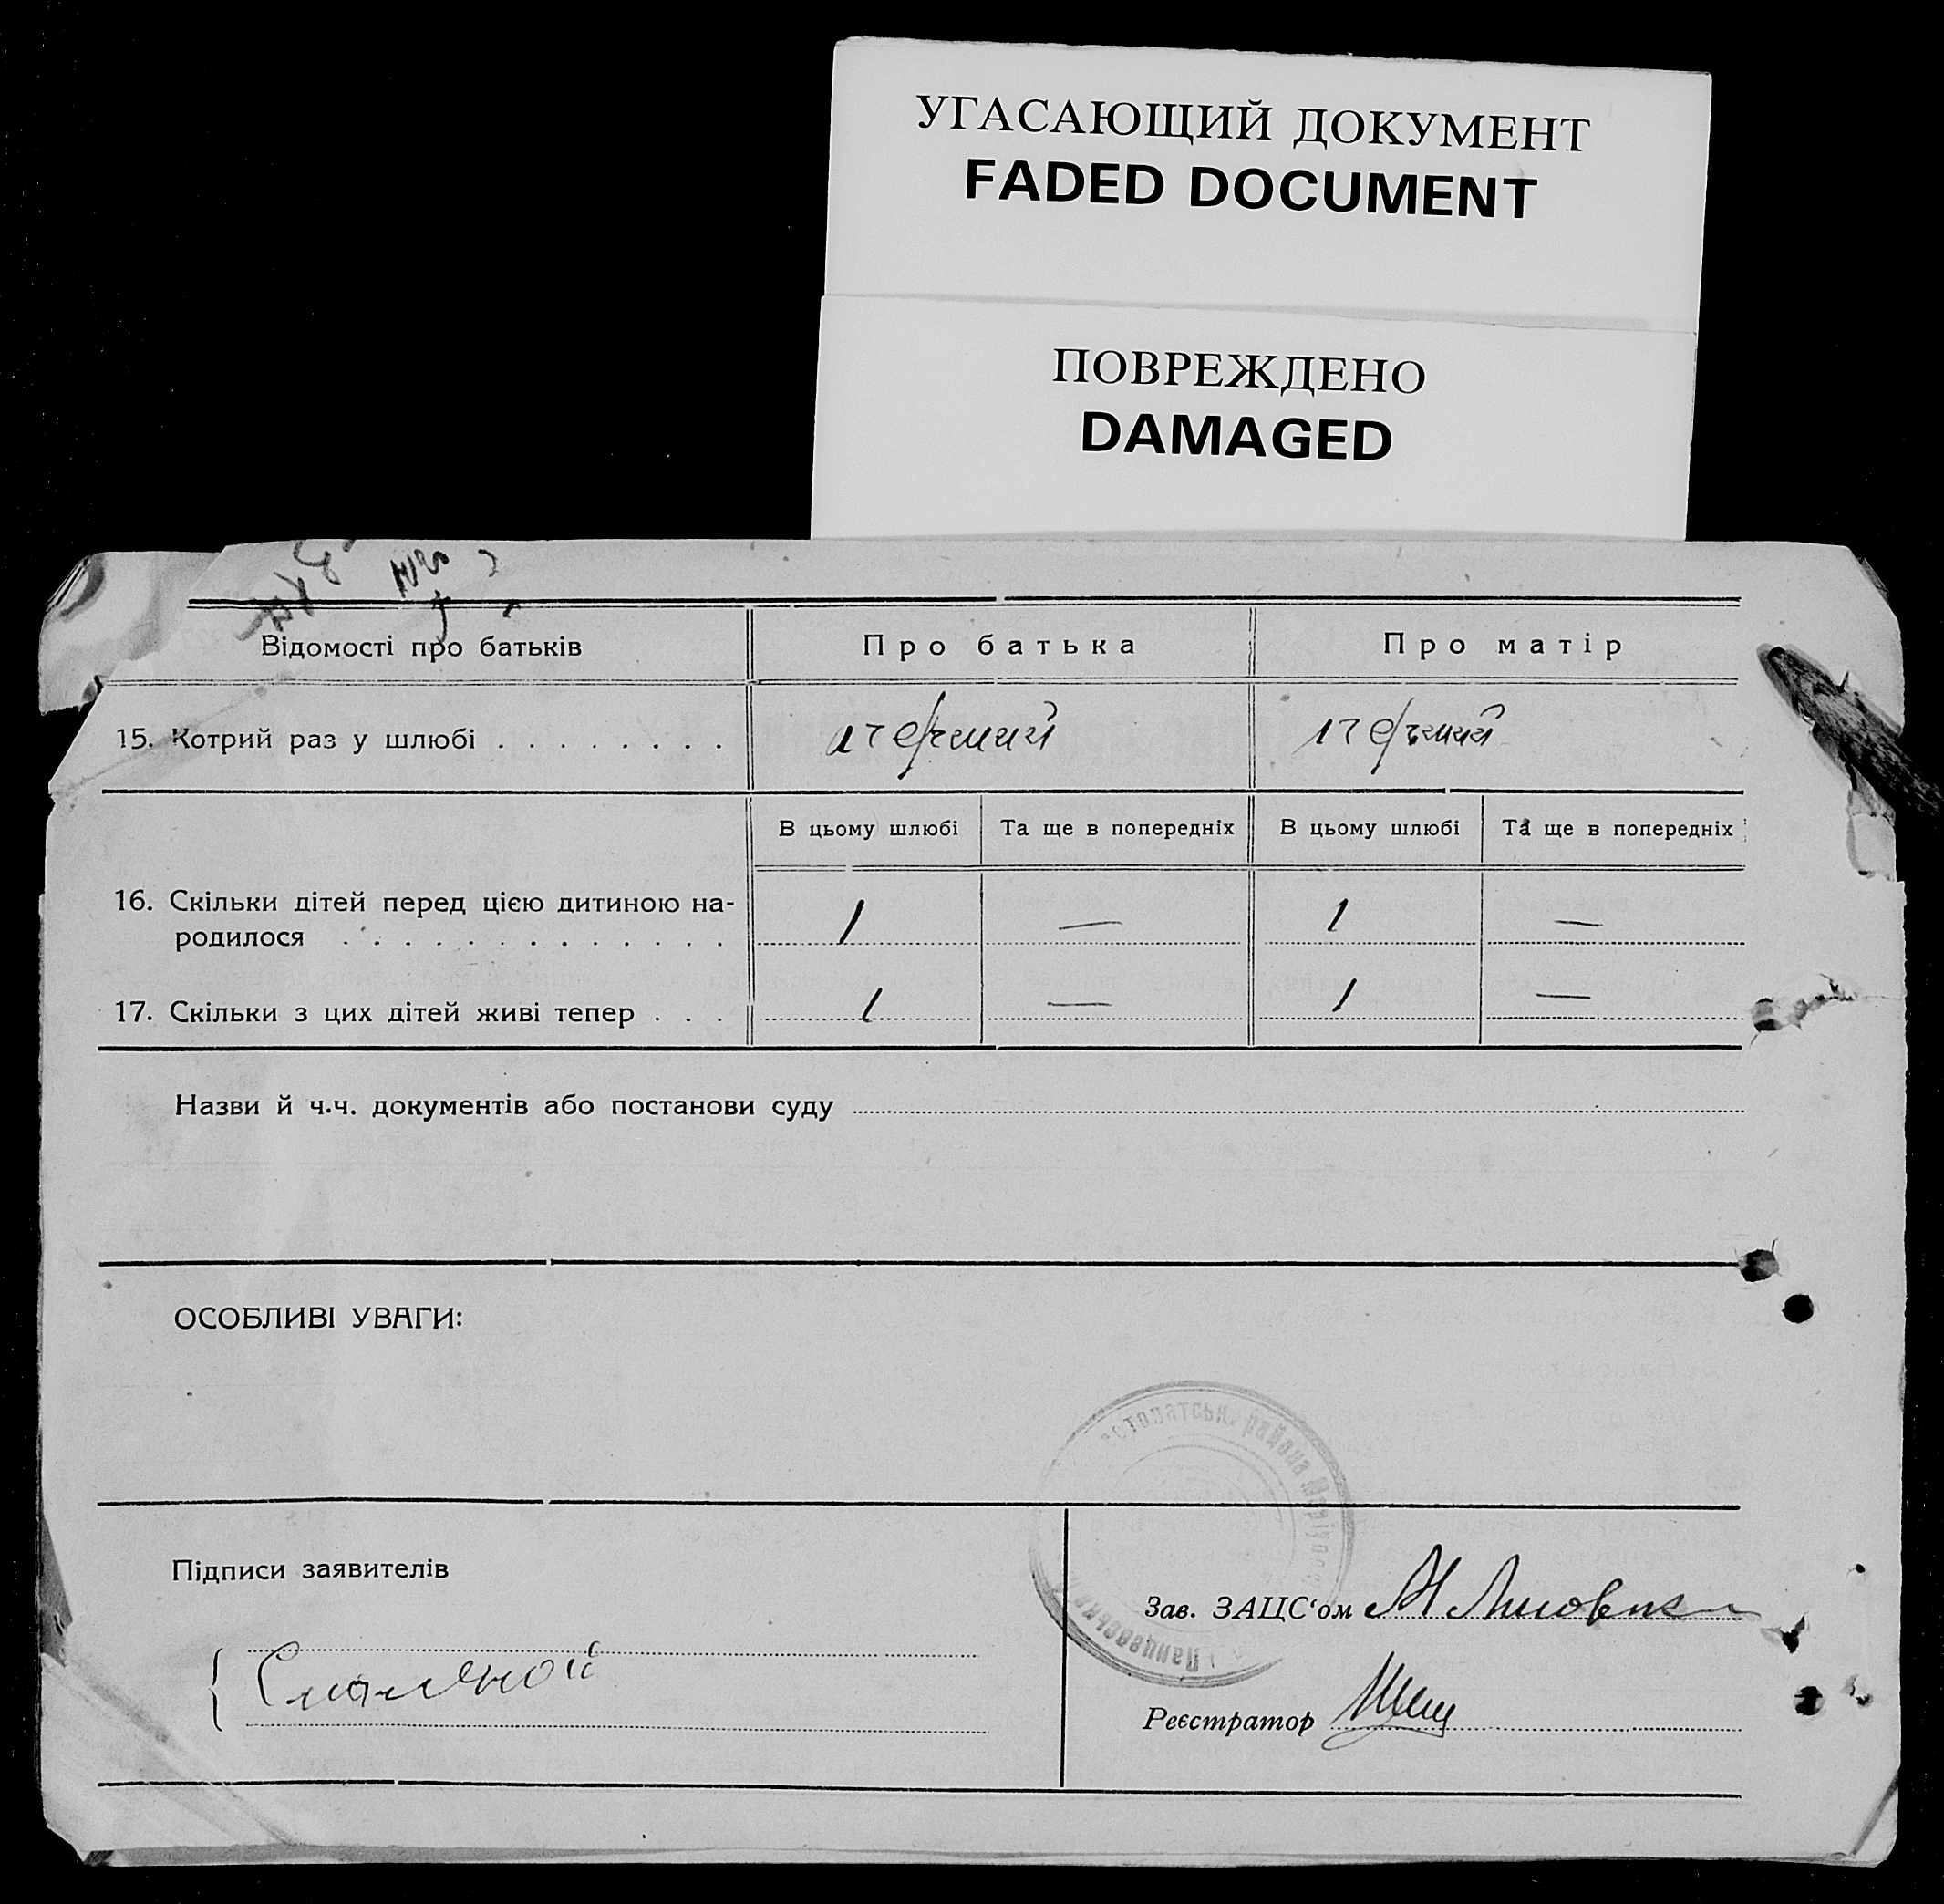 УГАСАЮЩИЙ ДОКУМЕНТ
FADED DOCUMENT
ПОВРЕЖДЕНО
DAMAGED
Відомості про батьків
Про батька
Про матір
15. Котрий раз у шлюбі . . . . . . . .
перший
перший
В цьому шлюбі
Та ще в попередніх
В цьому шлюбі
Та ще в попередніх
16. Скільки дітей перед цією дитиною на-
родилося . . . . . . . . . . . . .
1
—
1
—
17. Скільки з цих дітей живі тепер . . .
1
—
1
—
Назви й ч.ч. документів або постанови суду
ОСОБЛИВІ УВАГИ:
района
Підписи заявителів
Зав. ЗАЦС‘ом
Реєстратор